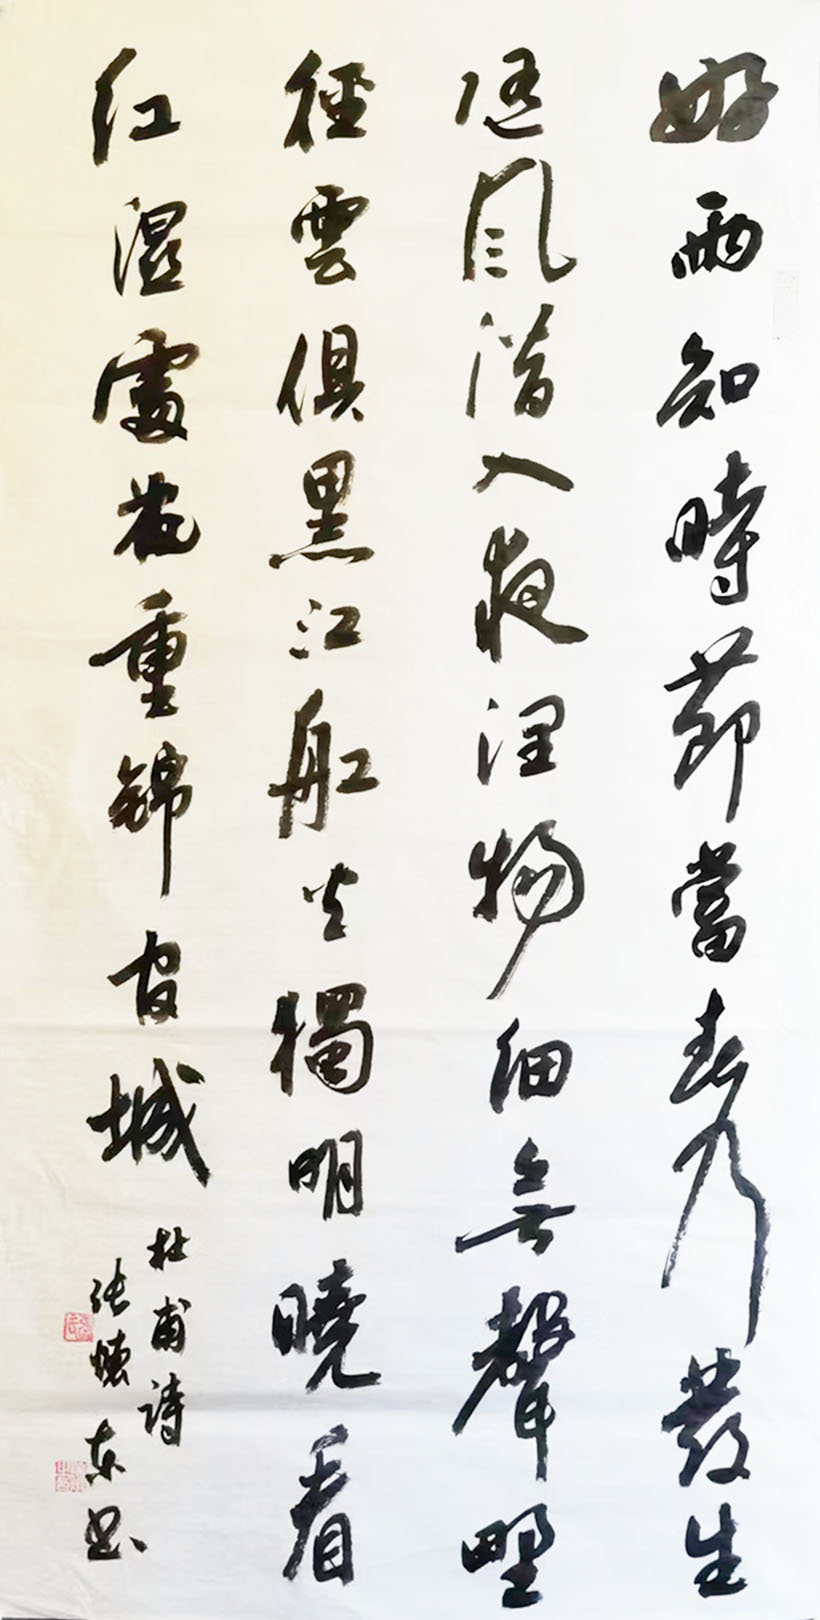 好雨知時節當春乃發生
随風潛入夜潤物細無聲野
徑雲俱黑江船火獨明曉看
红濕處花重錦官城
杜甫诗
张懷东书